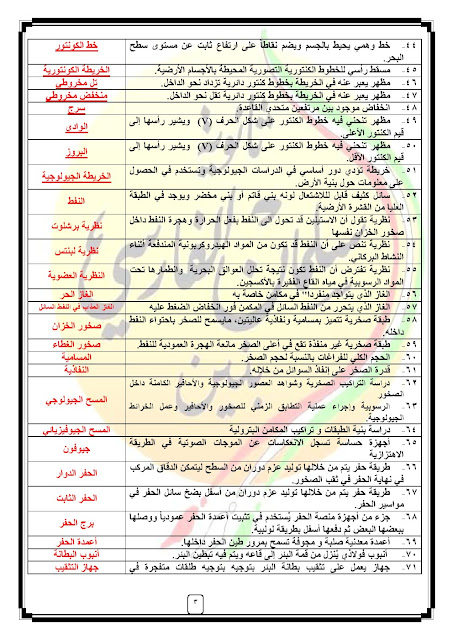 ٤٤. خط وهمي يحيط بالجسم ويضم نقاطاً على ارتفاع ثابت عن مستوى سطح البحر.
خط الكونتور
٤٥. مسقط رأسي للخطوط الكنتورية التصورية المحيطة بالأجسام الأرضية.
الخريطة الكونتورية
٤٦. مظهر يعبر عنه في الخريطة بخطوط كنتور دائرية تزداد نحو الداخل.
تل مخروطي
٤٧. مظهر يعبر عنه في الخريطة بخطوط كنتور دائرية تقل نحو الداخل.
منخفض مخروطي
٤٨. انخفاض موجود بين مرتفعين متحدي القاعدة.
سرج
٤٩. مظهر تنحني فيه خطوط الكنتور على شكل الحرف (V) ويشير رأسها إلى قيم الكنتور الأعلى.
الوادي
٥٠. مظهر تنحني فيه خطوط الكنتور على شكل الحرف (V) ويشير رأسها إلى قيم الكنتور الأقل.
البروز
٥١. خريطة تؤدي دور أساسي في الدراسات الجيولوجية وتستخدم في الحصول على معلومات حول بنية الأرض.
الخريطة الجيولوجية
٥٢. سائل كثيف قابل للاشتعال لونه بني قاتم أو بني مخضر ويوجد في الطبقة العليا من القشرة الأرضية.
النفط
٥٣. نظرية تقول أن الاستيلين قد تحول الى النفط بفعل الحرارة وهجرة النفط داخل صخور الخزان نفسها
نظرية برشلوت
٥٤. نظرية تنص على أن النفط قد تكون من المواد الهيدروكربونية المندفعة أثناء النشاط البركاني.
نظرية ليننس
٥٥. نظرية تفترض أن النفط تكون نتيجة تحلل العوالق البحرية وانطمارها تحت المواد الرسوبية في مياه القاع الفقيرة بالأكسجين.
النظرية العضوية
٥٦. الغاز الذي يتواجد منفردا" في مكامن خاصة به
الغاز الحر
٥٧. الغاز الذي يتحرر من النفط السائل في المكمن فور انخفاض الضغط عليه
الغاز المذاب في النفط السائل
٥٨. طبقة صخرية تتميز بمسامية ونفاذية عاليتين، مايسمح للصخر باحتواء النفط داخله.
صخور الخزان
٥٩. طبقة صخرية غير منفذة تقع في أعلى الصخر مانعة الهجرة العمودية للنفط.
صخور الغطاء
٦٠. الحجم الكلي للفراغات بالنسبة لحجم الصخر.
المسامية
٦١. قدرة الصخر على إنفاذ السوائل من خلاله.
النفاذية
٦٢. دراسة التراكيب الصخرية وشواهد العصور الجيولوجية والأحافير الكامنة داخل الصخور
٦٣. الرسوبية وإجراء عملية التطابق الزمني للصخور والأحافير وعمل الخرائط الجيولوجية.
المسح الجيولوجي
٦٤. دراسة بنية الطبقات و تراكيب المكامن البترولية
المسح الجيوفيزيائي
٦٥. أجهزة حساسة تسجل الانعكاسات عن الموجات الصوتية في الطريقة الاهتزازية
جيوفون
٦٦. طريقة حفر يتم من خلالها توليد عزم دوران من السطح ليتمكن الدقاق المركب في نهاية الحفر في ثقب الصخور.
الحفر الدوار
٦٧. طريقة حفر يتم من خلالها توليد عزم دوران من أسفل بضخ سائل الحفر في مواسير الحفر.
الحفر الثابت
٦٨. جزء من أجهزة منصة الحفر يُستخدم في تثبيت أعمدة الحفر عمودياً ووصلها ببعضها البعض ثم دفعها أسفل بطريقة لولبية.
برج الحفر
٦٩. أعمدة معدنية صلبة و مجوفة تسمح بمرور طين الحفر داخلها.
أعمدة الحفر
٧٠. أنبوب فولاذي يُنزل من قمة البئر إلى قاعه ويتم فيه تبطين البئر.
أنبوب البطانة
٧١. جهاز يعمل على تثقيب بطانة البئر بتوجيه بتوجيه طلقات متفجرة في
جهاز التثقيب
٣